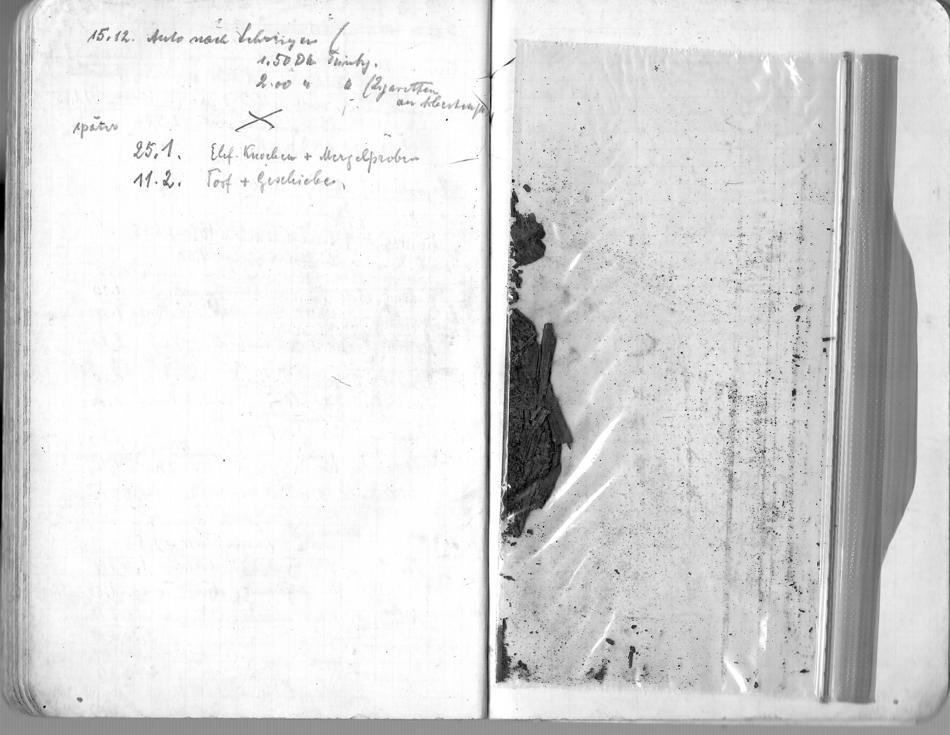 15.12. Auto nach Lehringen
1.50 Dm
2.00 " " (Zigaretten
an
später
25.1. Elef. Knochen + Mergelproben
11.2. Torf + Geschiebe.